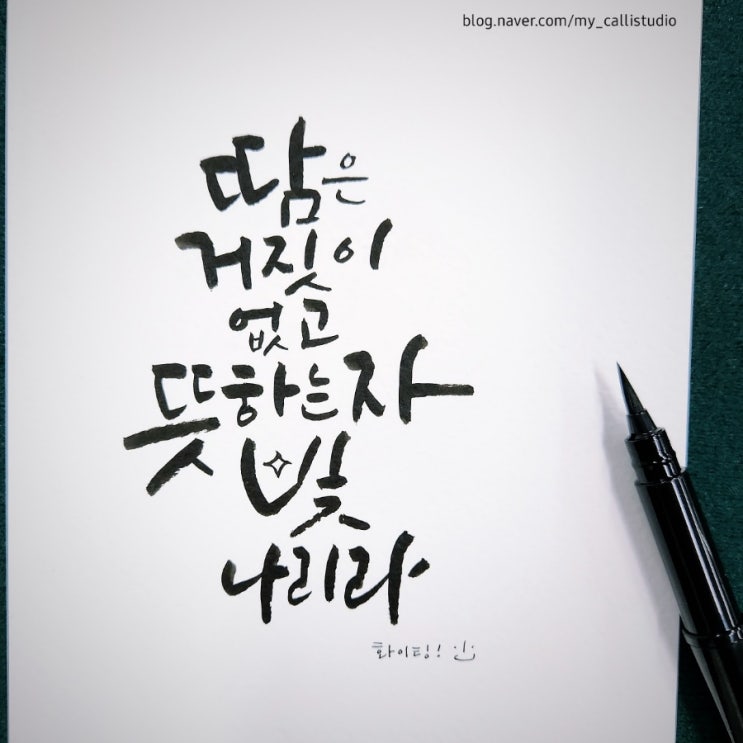 blog.naver.com/my_callistudio
땀은
거짓이
없고
뜻하는자
빛
나리라
화이팅!